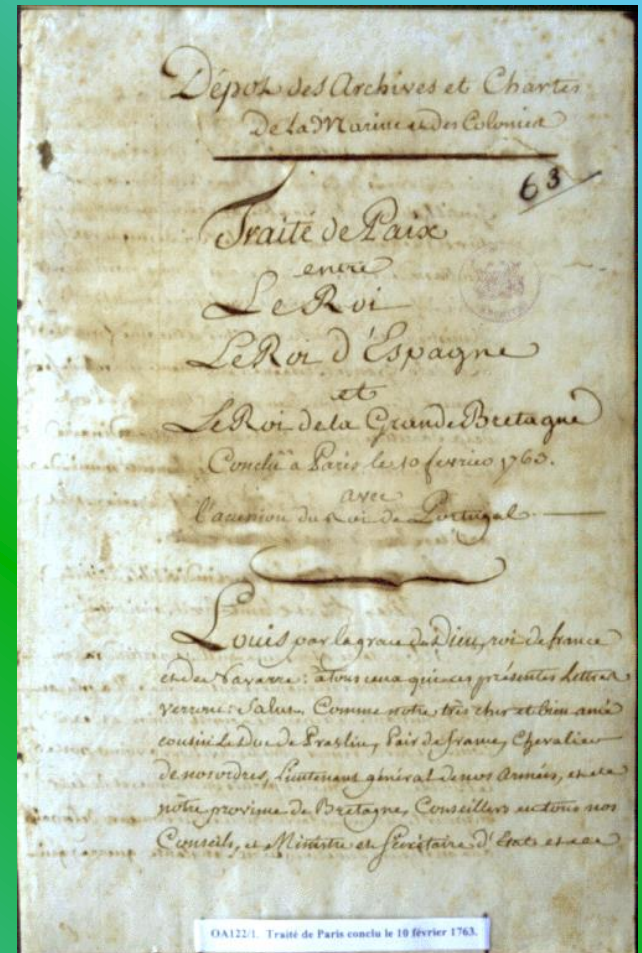 Dépôt des Archives et Chartes
De la Marine et des Colonies
63
Traité de Paix
entre
Le Roi
Le Roi d'Espagne
et
Le Roi de la Grande Bretagne
Conclu à Paris le 10 fevrier 1763.
avec
l'accession du Roi de Portugal.
Louis par la grace de Dieu, roi de france
et de Navarre: à tous ceux qui ces présentes Lettres
verront: Salut. Comme notre très cher et bien amé
cousin Le Duc de Praslin, Pair de france, Chevalier
de nos ordres, Lieutenant général de nos Armées, et de
nôtre province de Bretagne, Conseillers en tous nos
Conseils, et Ministre et Secrétaire d'Etat et de
OA122/1. Traité de Paris conclu le 10 février 1763.